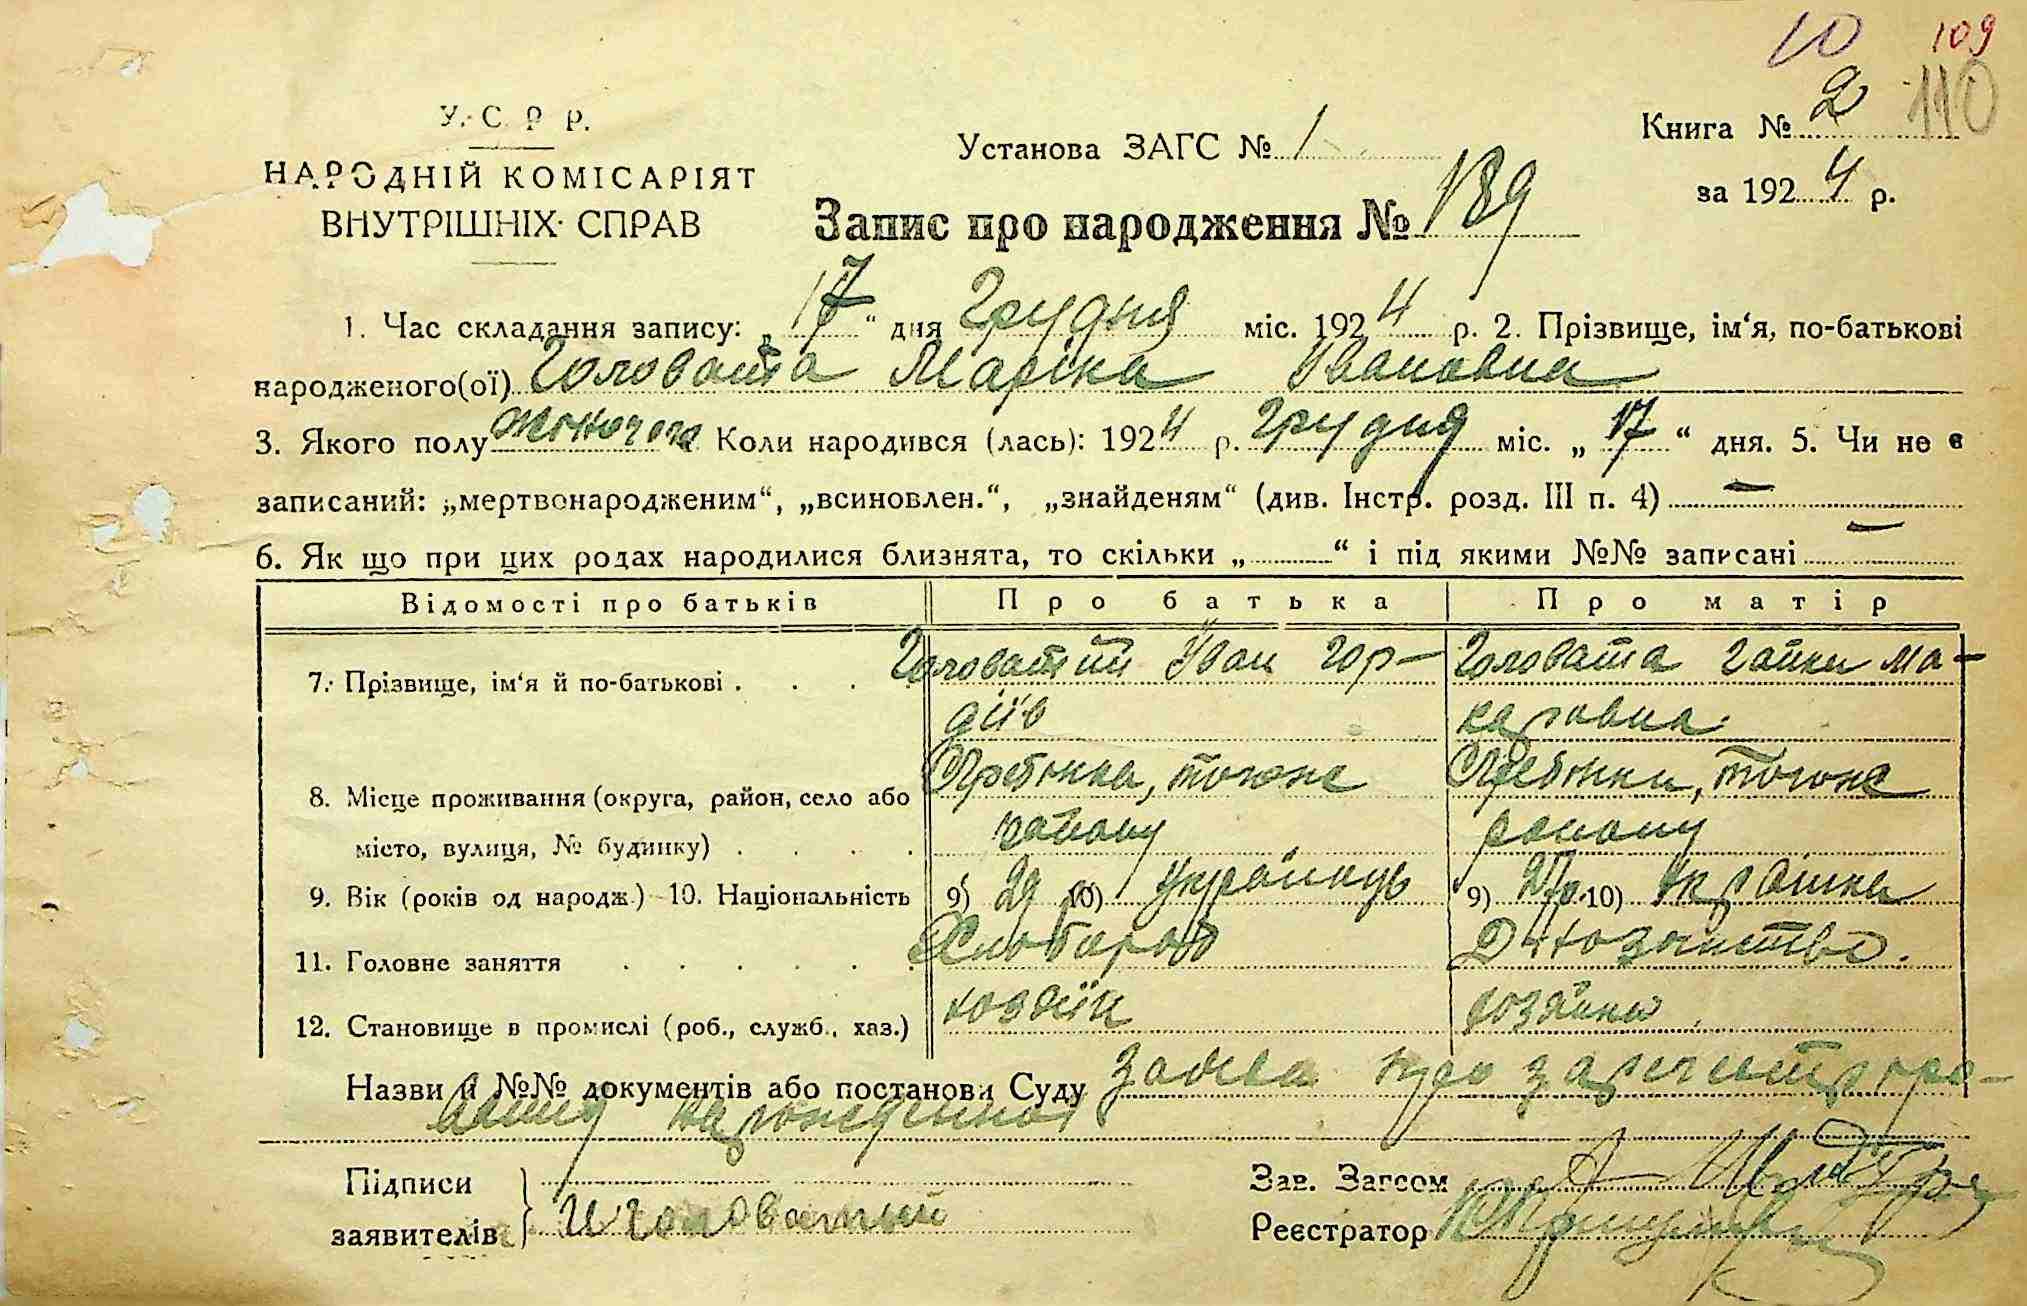 10 109
110
У. С. Р. Р.
НАРОДНІЙ КОМІСАРІЯТ
ВНУТРІШНІХ СПРАВ
Установа ЗАГС № 1
Книга № 2
за 1924 р.
Запис про народження № 189
1. Час складання запису: „17“ дня Грудня міс. 1924 р. 2. Прізвище, ім‘я, по-батькові
народженого(ої) Головата Маріка Івановна
3. Якого полу жоночого Коли народився (лась): 1924 р. Грудня міс. „17“ дня. 5. Чи не є
записаний: „мертвонародженим“, „всиновлен.“, „знайденям“ (див. Інстр. розд. III п. 4) —
6. Як що при цих родах народилися близнята, то скільки „ “ і під якими №№ записані —
Відомості про батьків Про батька Про матір
7. Прізвище, ім‘я й по-батькові . . . Головатий Іван Гор- Головата Ма-
діїв каровна
8. Місце проживання (округа, район, село або Гребінка, тогоже Гребінки, тогоже
місто, вулиця, № будинку) . . . . району району
9. Вік (років од народж.) 10. Національність 9) 29 10) Українець 9) 10) Українка
11. Головне заняття . . . . . . Хлібороб
12. Становище в промислі (роб., служб., хаз.) хозяїн хозяйка
Назви й №№ документів або постанови Суду Заява про зарегистриро-
вання нарождення
Підписи
заявителів И Головатый
Зав. Загсом
Реєстратор